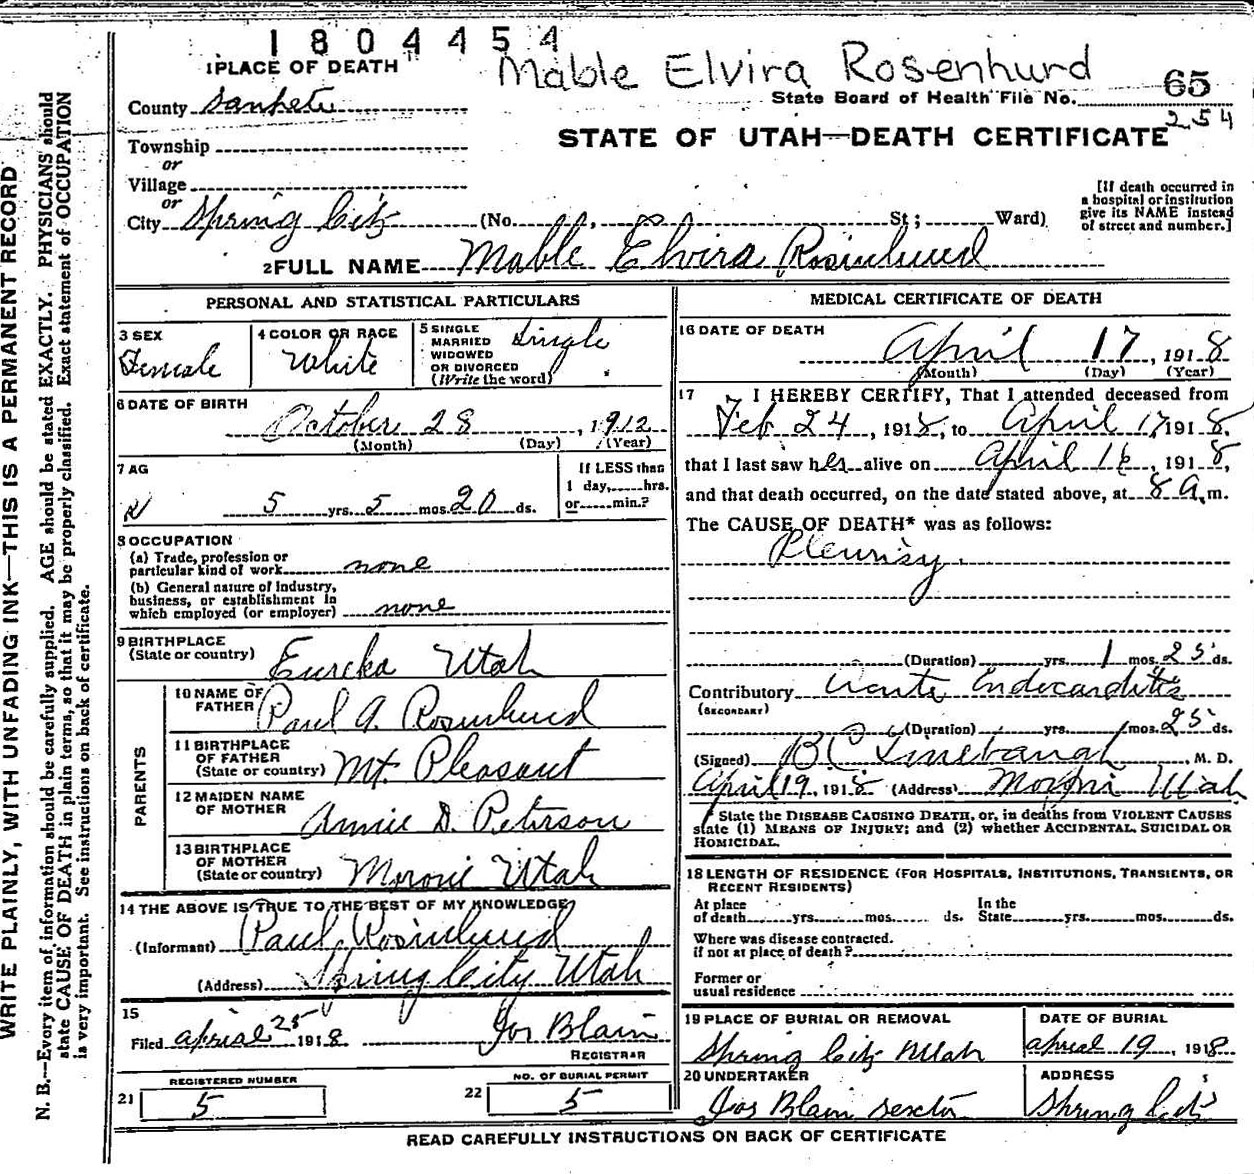 1804454
Mable Elvira Rosenhurd
1 PLACE OF DEATH
County Sanpete
State Board of Health File No. 65
254
Township
or
Village
or
STATE OF UTAH—DEATH CERTIFICATE
City Spring City (No. St; Ward)
[If death occurred in a hospital or institution give its NAME instead of street and number.]
2 FULL NAME Mable Elvira Rosinlund
PERSONAL AND STATISTICAL PARTICULARS
3 SEX Female
4 COLOR OR RACE White
5 SINGLE MARRIED WIDOWED OR DIVORCED (Write the word) Single
6 DATE OF BIRTH
October 28, 1912
(Month) (Day) (Year)
7 AG
5 yrs. 5 mos. 20 ds.
If LESS than 1 day, hrs. or min.?
8 OCCUPATION
(a) Trade, profession or particular kind of work none
(b) General nature of industry, business, or establishment in which employed (or employer) none
9 BIRTHPLACE
(State or country) Eureka Utah
PARENTS
10 NAME OF FATHER Paul A. Rosinlund
11 BIRTHPLACE OF FATHER (State or country) Mt. Pleasant
12 MAIDEN NAME OF MOTHER Annie D. Peterson
13 BIRTHPLACE OF MOTHER (State or country) Moroni Utah
14 THE ABOVE IS TRUE TO THE BEST OF MY KNOWLEDGE
(Informant) Paul Rosinlund
(Address) Spring City Utah
15
Filed aprial 25 1918 Jos Blain
REGISTRAR
REGISTERED NUMBER
21 5
NO. OF BURIAL PERMIT
22 5
MEDICAL CERTIFICATE OF DEATH
16 DATE OF DEATH
April 17, 1918
(Month) (Day) (Year)
17 I HEREBY CERTIFY, That I attended deceased from
Feb 24, 1918, to April 17 1918,
that I last saw her alive on April 16, 1918,
and that death occurred, on the date stated above, at 8 a.m.
The CAUSE OF DEATH* was as follows:
Pleurisy.
(Duration) yrs. 1 mos. 25 ds.
Contributory Acute Endocarditis
(SECONDARY)
(Duration) yrs. 1 mos. 25 ds.
(Signed) B C, M. D.
April 19, 1918 (Address) Moroni Utah
* State the DISEASE CAUSING DEATH, or, in deaths from VIOLENT CAUSES
state (1) MEANS OF INJURY; and (2) whether ACCIDENTAL, SUICIDAL OR
HOMICIDAL.
18 LENGTH OF RESIDENCE (FOR HOSPITALS, INSTITUTIONS, TRANSIENTS, OR
RECENT RESIDENTS)
At place of death yrs. mos. ds. In the State yrs. mos. ds.
Where was disease contracted.
if not at place of death?
Former or
usual residence
19 PLACE OF BURIAL OR REMOVAL
Spring City Utah
DATE OF BURIAL
aprial 19, 1918
20 UNDERTAKER
Jos Blain sexton
ADDRESS
Spring City
READ CAREFULLY INSTRUCTIONS ON BACK OF CERTIFICATE
WRITE PLAINLY, WITH UNFADING INK—THIS IS A PERMANENT RECORD
N. B.—Every item of information should be carefully supplied. AGE should be stated EXACTLY. PHYSICIANS should
state CAUSE OF DEATH in plain terms, so that it may be properly classified. Exact statement of OCCUPATION
is very important. See instructions on back of certificate.